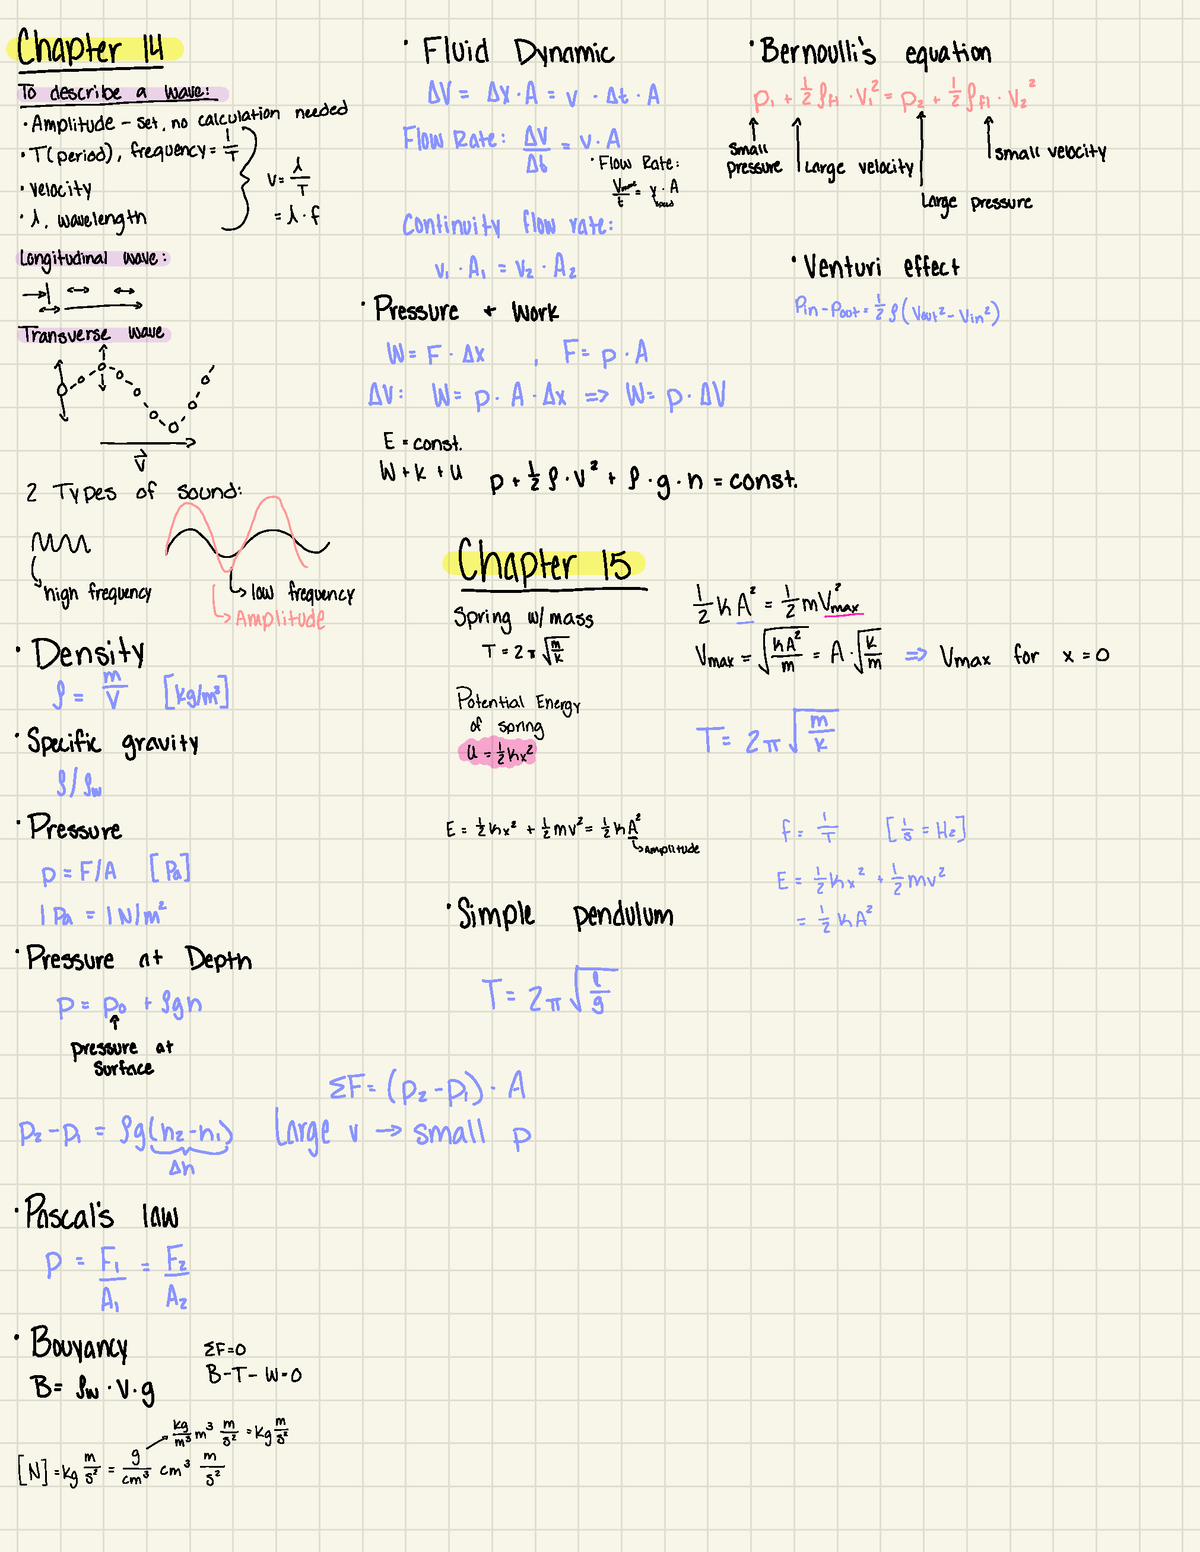 Chapter 14
To describe a wave:
• Amplitude – set, no calculation needed
• T(period), frequency = 1/T
• velocity
• λ, wavelength
v = λ/T
= λ · f
Longitudinal wave:
Transverse wave
v⃗
2 Types of sound:
high frequency
low frequency
Amplitude
• Density
ρ = m/V [kg/m³]
• Specific gravity
ρ/ρw
• Pressure
p = F/A [Pa]
1 Pa = 1 N/m²
• Pressure at Depth
p = p₀ + ρgh
pressure at
surface
ΣF = (p₂ - p₁) · A
p₂ - p₁ = ρg(h₂ - h₁)
Δh
Large v → small p
• Pascal's law
p = F₁/A₁ = F₂/A₂
• Bouyancy
B = ρw · V · g
ΣF = 0
B - T - W = 0
kg/m³ m³ m/s² = kg m/s²
[N] = kg m/s² = g/cm³ cm³ m/s²
• Fluid Dynamic
ΔV = Δx · A = v · Δt · A
Flow Rate: ΔV/Δt = v · A
• Flow Rate:
Continuity flow rate:
v₁ · A₁ = v₂ · A₂
• Pressure + Work
W = F · Δx , F = p · A
ΔV: W = p · A · Δx => W = p · ΔV
E = const.
W + K + U
p + 1/2 ρ · v² + ρ · g · h = const.
• Bernoulli's equation
p₁ + 1/2 ρfl · v₁² = p₂ + 1/2 ρfl · v₂²
small
pressure
large velocity
large pressure
small velocity
• Venturi effect
Pin - Pout = 1/2 ρ (Vout² - Vin²)
Chapter 15
Spring w/mass
T = 2π √(m/k)
Potential Energy
of spring
U = 1/2 kx²
E = 1/2 kx² + 1/2 mv² = 1/2 kA²
Amplitude
• Simple pendulum
T = 2π √(l/g)
1/2 kA² = 1/2 mv²max
Vmax = √(kA²/m) = A · √(k/m) => Vmax for x = 0
T = 2π √(m/k)
f = 1/T [1/s = Hz]
E = 1/2 kx² + 1/2 mv²
= 1/2 kA²